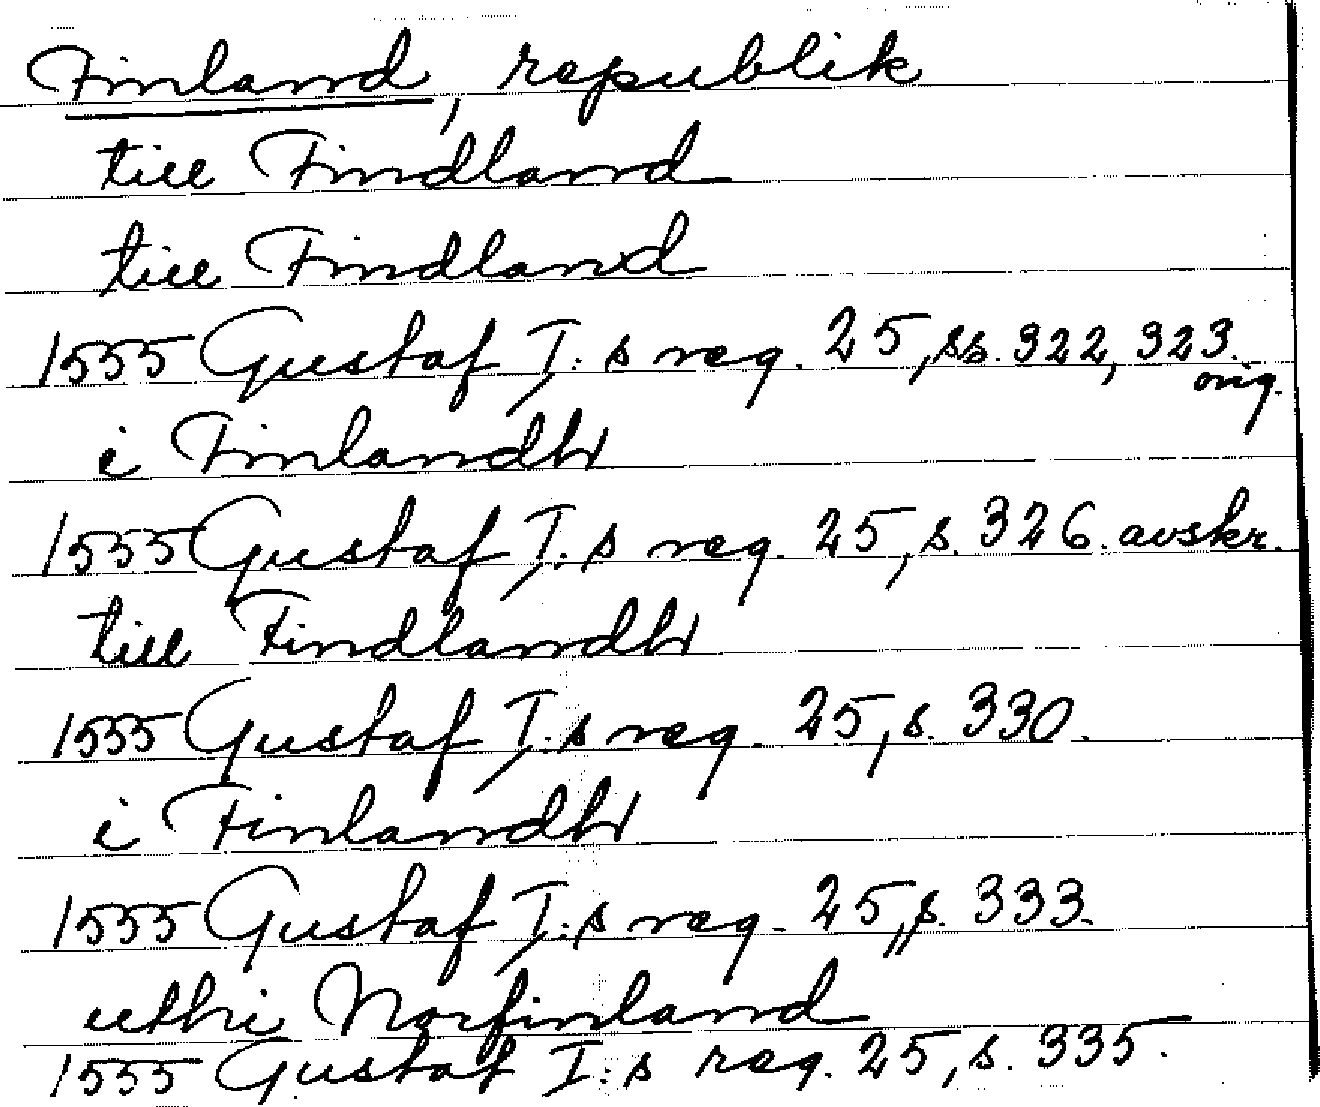 Finland, republik
till Findland
till Findland
1555 Gustaf I:s reg. 25, ss. 322, 323.
orig.
i Finlandh
1555 Gustaf I:s reg. 25, s. 326. avskr.
till Findlandh
1555 Gustaf I:s reg. 25, s. 330.
i Finlandh
1555 Gustaf I:s reg. 25, s. 333.
uthi Norfinland
1555 Gustaf I:s reg. 25, s. 335.